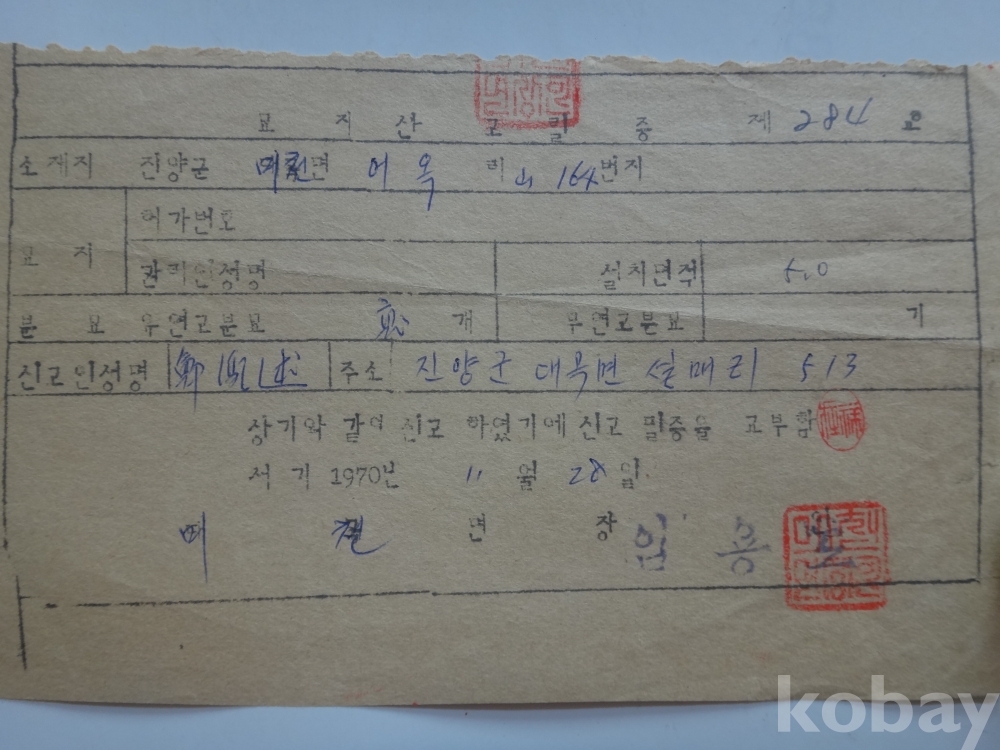 묘 지 산 고 필 증 제 284 호
소재지 진양군 미천면 어옥 리 山 164번지
묘 지 허가번호
관리인성명 설치면적 5.0
분 묘 유연고분묘 개 무연고분묘 기
신고인성명 鄭 述 주소 진양군 대곡면 설매리 513
상기와 같이 신고 하였기에 신고 필증을 교부함
서기 1970년 11 월 28 일
미 천 면 장 임 용
kobay